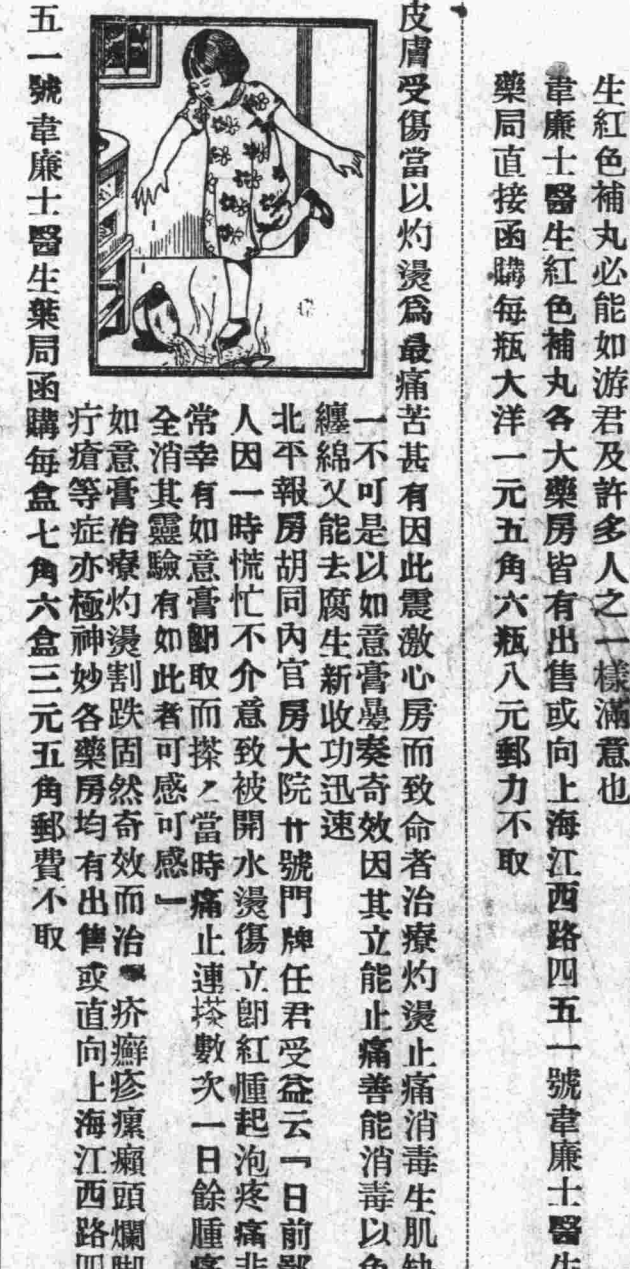 生紅色補丸必能如游君及許多人之一樣滿意也
韋廉士醫生紅色補丸各大藥房皆有出售或向上海江西路四五一號韋廉士醫生
藥局直接函購每瓶大洋一元五角六瓶八元郵力不取
皮膚受傷當以灼燙爲最痛苦甚有因此震激心房而致命者治療灼燙止痛消毒生肌缺
一不可是以如意膏屢奏奇效因其立能止痛善能消毒以免
纏綿又能去腐生新收功迅速
北平報房胡同內官房大院廿號門牌任君受益云「日前鄙
人因一時慌忙不介意致被開水燙傷立卽紅腫起泡疼痛非
常幸有如意膏卽取而搽之當時痛止連搽數次一日餘腫痛
全消其靈驗有如此者可感可感」
如意膏治療灼燙割跌固然奇效而治 疥癬疹瘰癩頭爛脚
疔瘡等症亦極神妙各藥房均有出售或直向上海江西路四
五一號韋廉士醫生葉局函購每盒七角六盒三元五角郵費不取